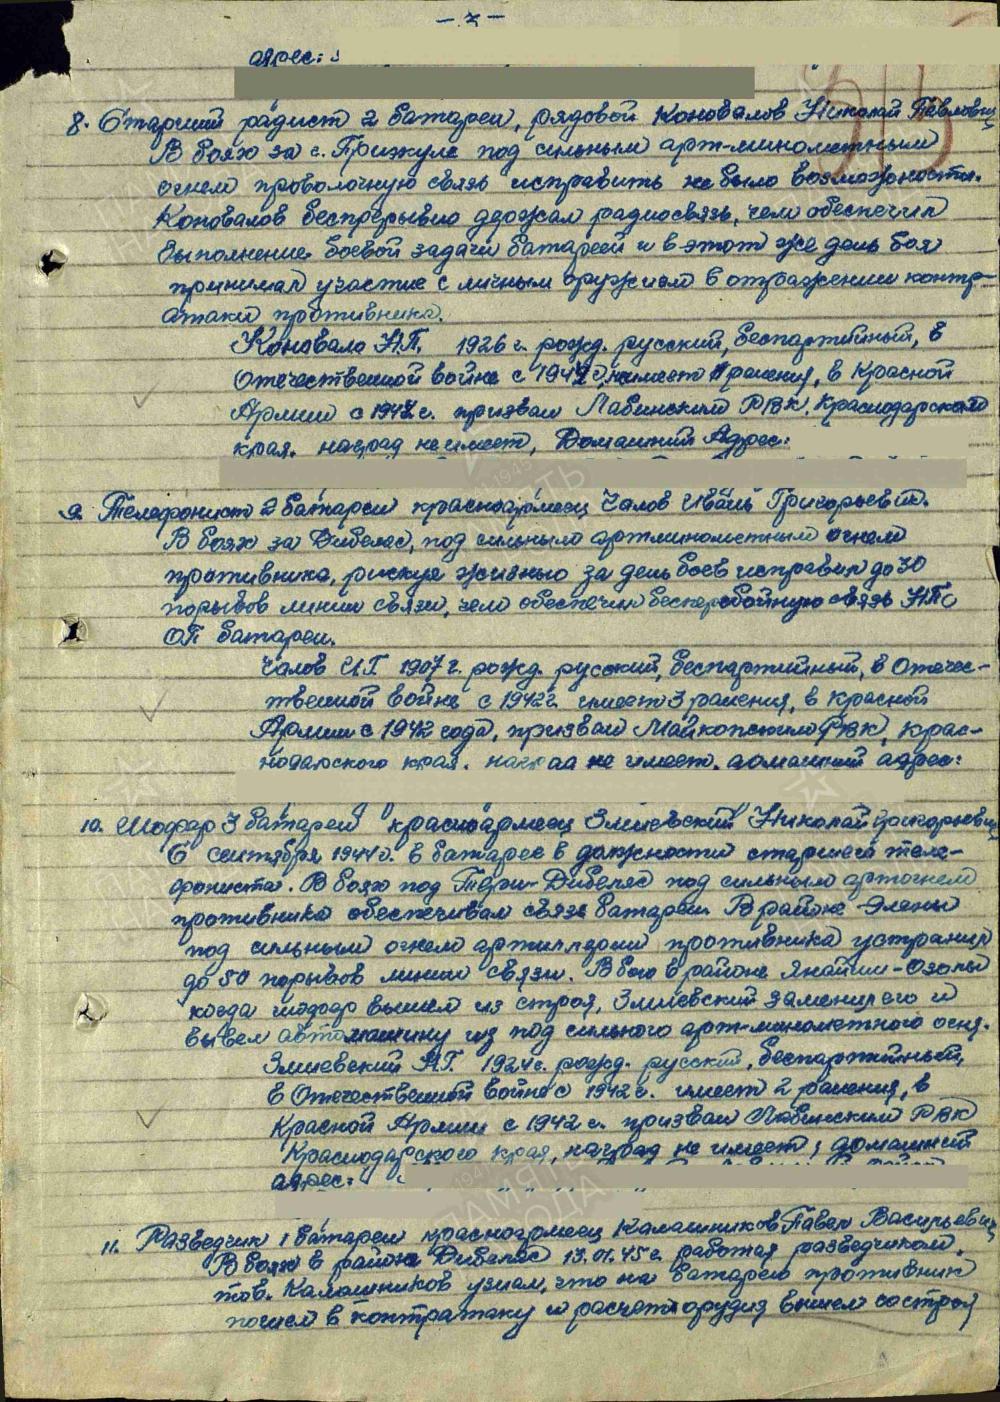 - 7 -
адрес:
8. Старший радист 2 батареи, рядовой Коновалов Николай Павлович
В боях за с. Прижуле под сильным арт-минометным
огнем проволочную связь исправить не было возможности.
Коновалов беспрерывно держал радиосвязь, чем обеспечил
выполнение боевой задачи батареей и в этот же день боя
принимал участие с личным оружием в отражении контр-
атаки противника.
Коновалов Н.П. 1926 г. рожд. русский, беспартийный, в
Отечественной войне с 1942 г., не имеет ранения, в Красной
Армии с 1942 г. призван Лабинским РВК, Краснодарского
края. наград не имеет, Домашний Адрес:
9. Телефонист 2 батареи красноармеец Чалов Иван Григорьевич.
В боях за Дибеляс, под сильным артминометным огнем
противника, рискуя жизнью за день боев исправил до 30
порывов линии связи, чем обеспечил бесперебойную связь НП с
ОП батареи.
Чалов И.Г. 1907 г. рожд. русский, беспартийный, в Отечес-
твенной войне с 1942 г. имеет 3 ранения, в Красной
Армии с 1942 года, призван Майкопским РВК, Крас-
нодарского края. наград не имеет. домашний адрес:
10. Шофер 3 батареи красноармеец Змиевский Николай Григорьевич
С сентября 1944 г. в батарее в должности старшего теле-
фониста. В боях под Тери-Дибеляс под сильным артогнем
противника обеспечивал связь батареи. В районе Элены
под сильным огнем артиллерии противника устранил
до 50 порывов линии связи. В бою в районе Янайши-Озолы
когда шофер вышел из строя, Змиевский заменил его и
вывел автомашину из под сильного арт-минометного огня.
Змиевский Н.Г. 1924 г. рожд. русский, беспартийный,
в Отечественной войне с 1942 г. имеет 2 ранения, в
Красной Армии с 1942 г. призван Лабинским РВК
Краснодарского края, наград не имеет, домашний
адрес:
11. Разведчик 1 батареи красноармеец Калашников Павел Васильевич
В боях в районе Дибеляс 13.01.45 г. работая разведчиком,
тов. Калашников узнал, что на батарею противник
пошел в контратаку и расчет орудия вышел со строя